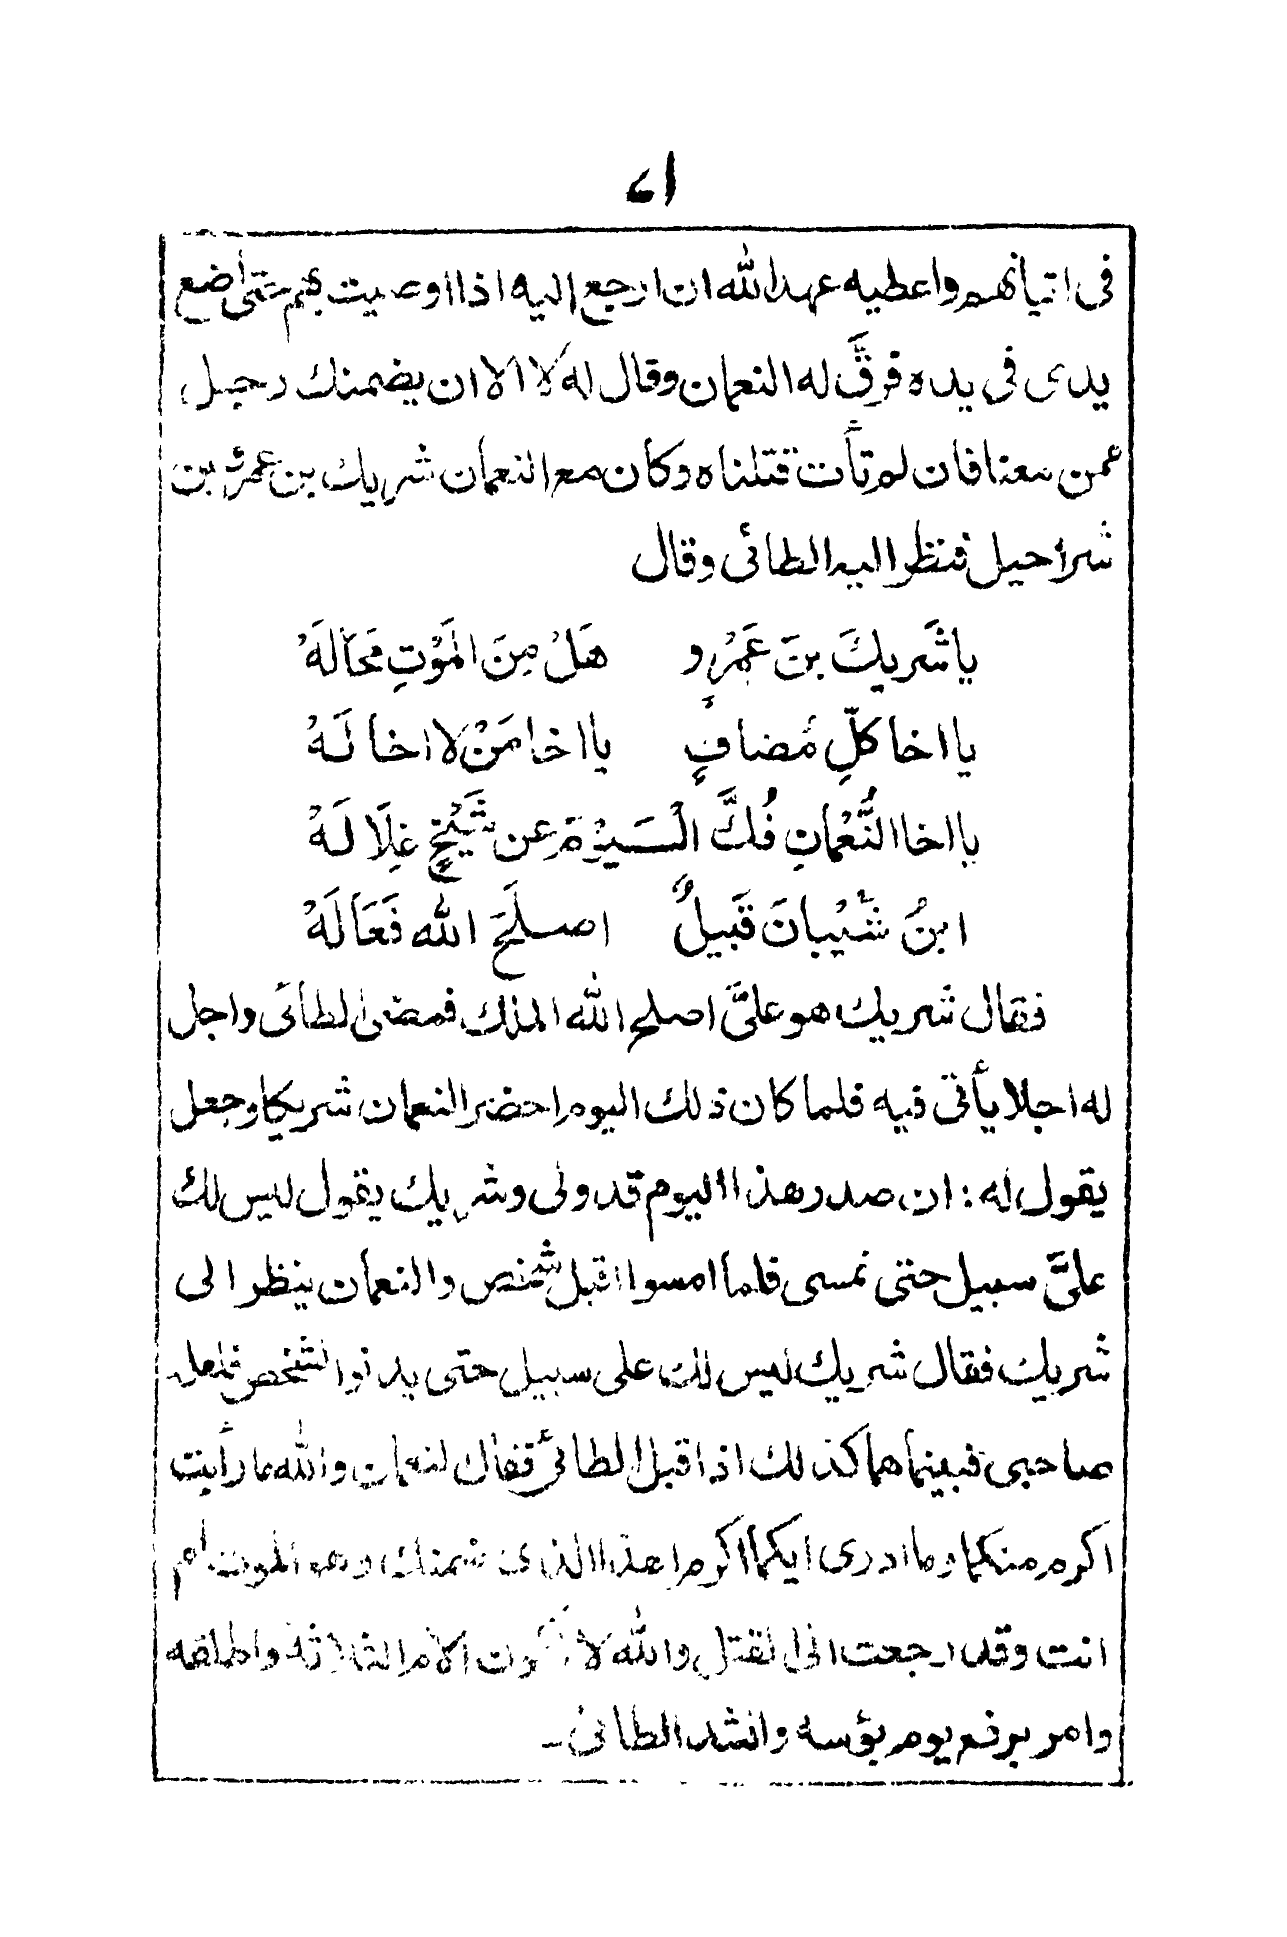 ١٤
فى اتيانهم واعطيه عهد الله ان ارجع اليه اذا اوصيت بهم حتى أضع
يدى فى يده فرقَّ له النعمان وقال له لا الا ان يضمنك رجل
ممن معنا فان لم تأت قتلناه وكان مع النعمان شريك بن عمرو بن
شراحيل فنظر اليه الطائى وقال
يا شَريكَ بنَ عَمْرٍو هَلْ مِنَ المَوْتِ مَحَالَهْ
يا اخا كلِّ مُضافٍ يا اخا مَنْ لا اخا لَهْ
يا اخا النُّعْمانِ فُكَّ الْيَوْمَ عن شَيْخٍ غِلَالَهْ
ابنُ شَيْبانَ قَبيلٌ اصلَحَ الله فَعَالَهْ
فقال شريك هو علىَّ اصلح الله الملك فمضى الطائى واجل
له اجلا يأتى فيه فلما كان ذلك اليوم احضر النعمان شريكا وجعل
يقول له : ان صدر هذا اليوم قد ولى وشريك يقول ليس لك
علىَّ سبيل حتى نمسى فلما امسوا اقبل شخص والنعمان ينظر الى
شريك فقال شريك ليس لك على سبيل حتى يدنو الشخص فلعله
صاحبى فبينما هما كذلك اذ اقبل الطائى فقال لنعمان والله ما رأيت
اكرم منكما وما ادرى ايكما اكرم اهذا الذى ضمنك وهو الموت أم
انت وقد رجعت الى القتل والله لا اكون الأم الثلاثة واطلقه
وامر برفع يوم بؤسه وانشد الطائى ـ